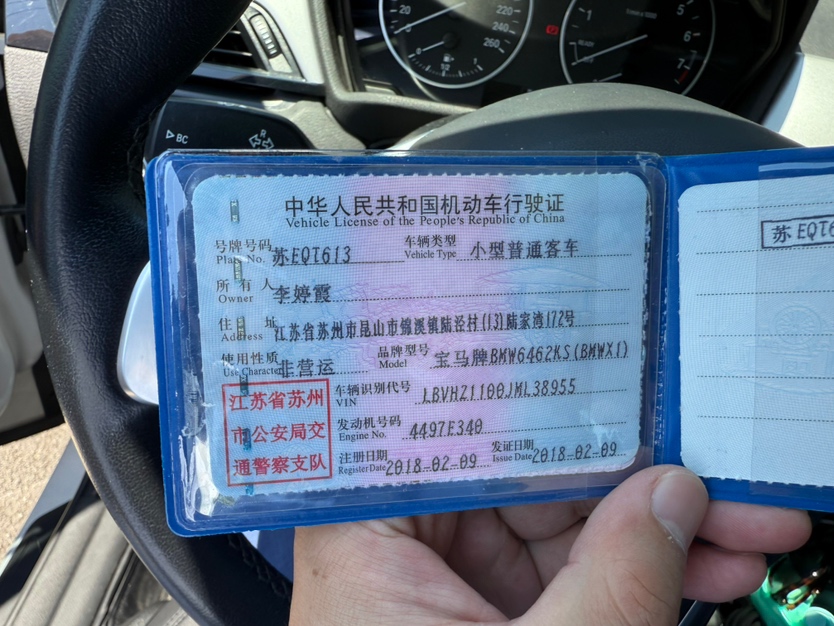 中华人民共和国机动车行驶证
Vehicle License of the People's Republic of China
号牌号码 苏EQT613 车辆类型 小型普通客车
Plate No. Vehicle Type
所有人 李婷霞
Owner
住址 江苏省苏州市昆山市锦溪镇陆泾村(13)陆家湾172号
Address
使用性质 非营运 品牌型号 宝马牌BMW6462KS(BMWX1)
Use Character Model
江苏省苏州
市公安局交
通警察支队
车辆识别代号 LBVHZ1100JML38955
VIN
发动机号码 4497E340
Engine No.
注册日期 2018-02-09 发证日期 2018-02-09
Register Date Issue Date
苏EQT6
BC
R
20
220
240
260
1/2
1
5
6
7
READY